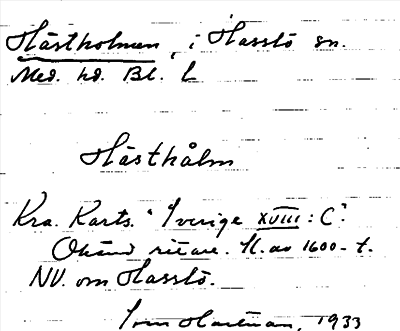 Hästholmen, i Hasslö sn.
Med. hd. Bl. l
Hästhålm
Kra. Karts. "Sverige XVIII: C".
Okänd ritare. Sl. av 1600-t.
NV. om Hasslö.
Hartman, 1933